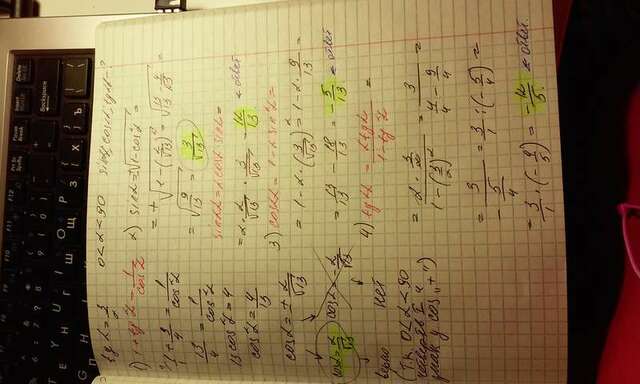 tg α = 3/2   0<α<90   sin2α, cos2α, tg2α - ?
1) 1 + tg²α = 1/cos²α
1 + 9/4 = 1/cos²α
13/4 = 1/cos²α
13cos²α = 4
cos²α = 4/13
cosα = ± 2/√13
cosα = 2/√13   cosα = -2/√13
верно   нет
(т.к. 0<α<90
четверть I и
знак у cos „+")
2) sinα = √1-cos²α =
= +√(1-(2/√13)²) = √(13/13 - 4/13) =
= √(9/13) = 3/√13
sin2α = 2cosα sinα =
= 2 · 2/√13 · 3/√13 = 12/13 ← ответ
3) cos2α = 1-2sin²α =
= 1-2·(3/√13)² = 1-2·9/13 =
= 13/13 - 18/13 = -5/13 ← ответ
4) tg2α = 2tgα/1-tg²α =
= 2·3/2 / 1-(3/2)² = 3 / 4/4 - 9/4 =
= 3 / -5/4 = 3/1 : (-5/4) =
= 3/1 · (-4/5) = -12/5 ← ответ.